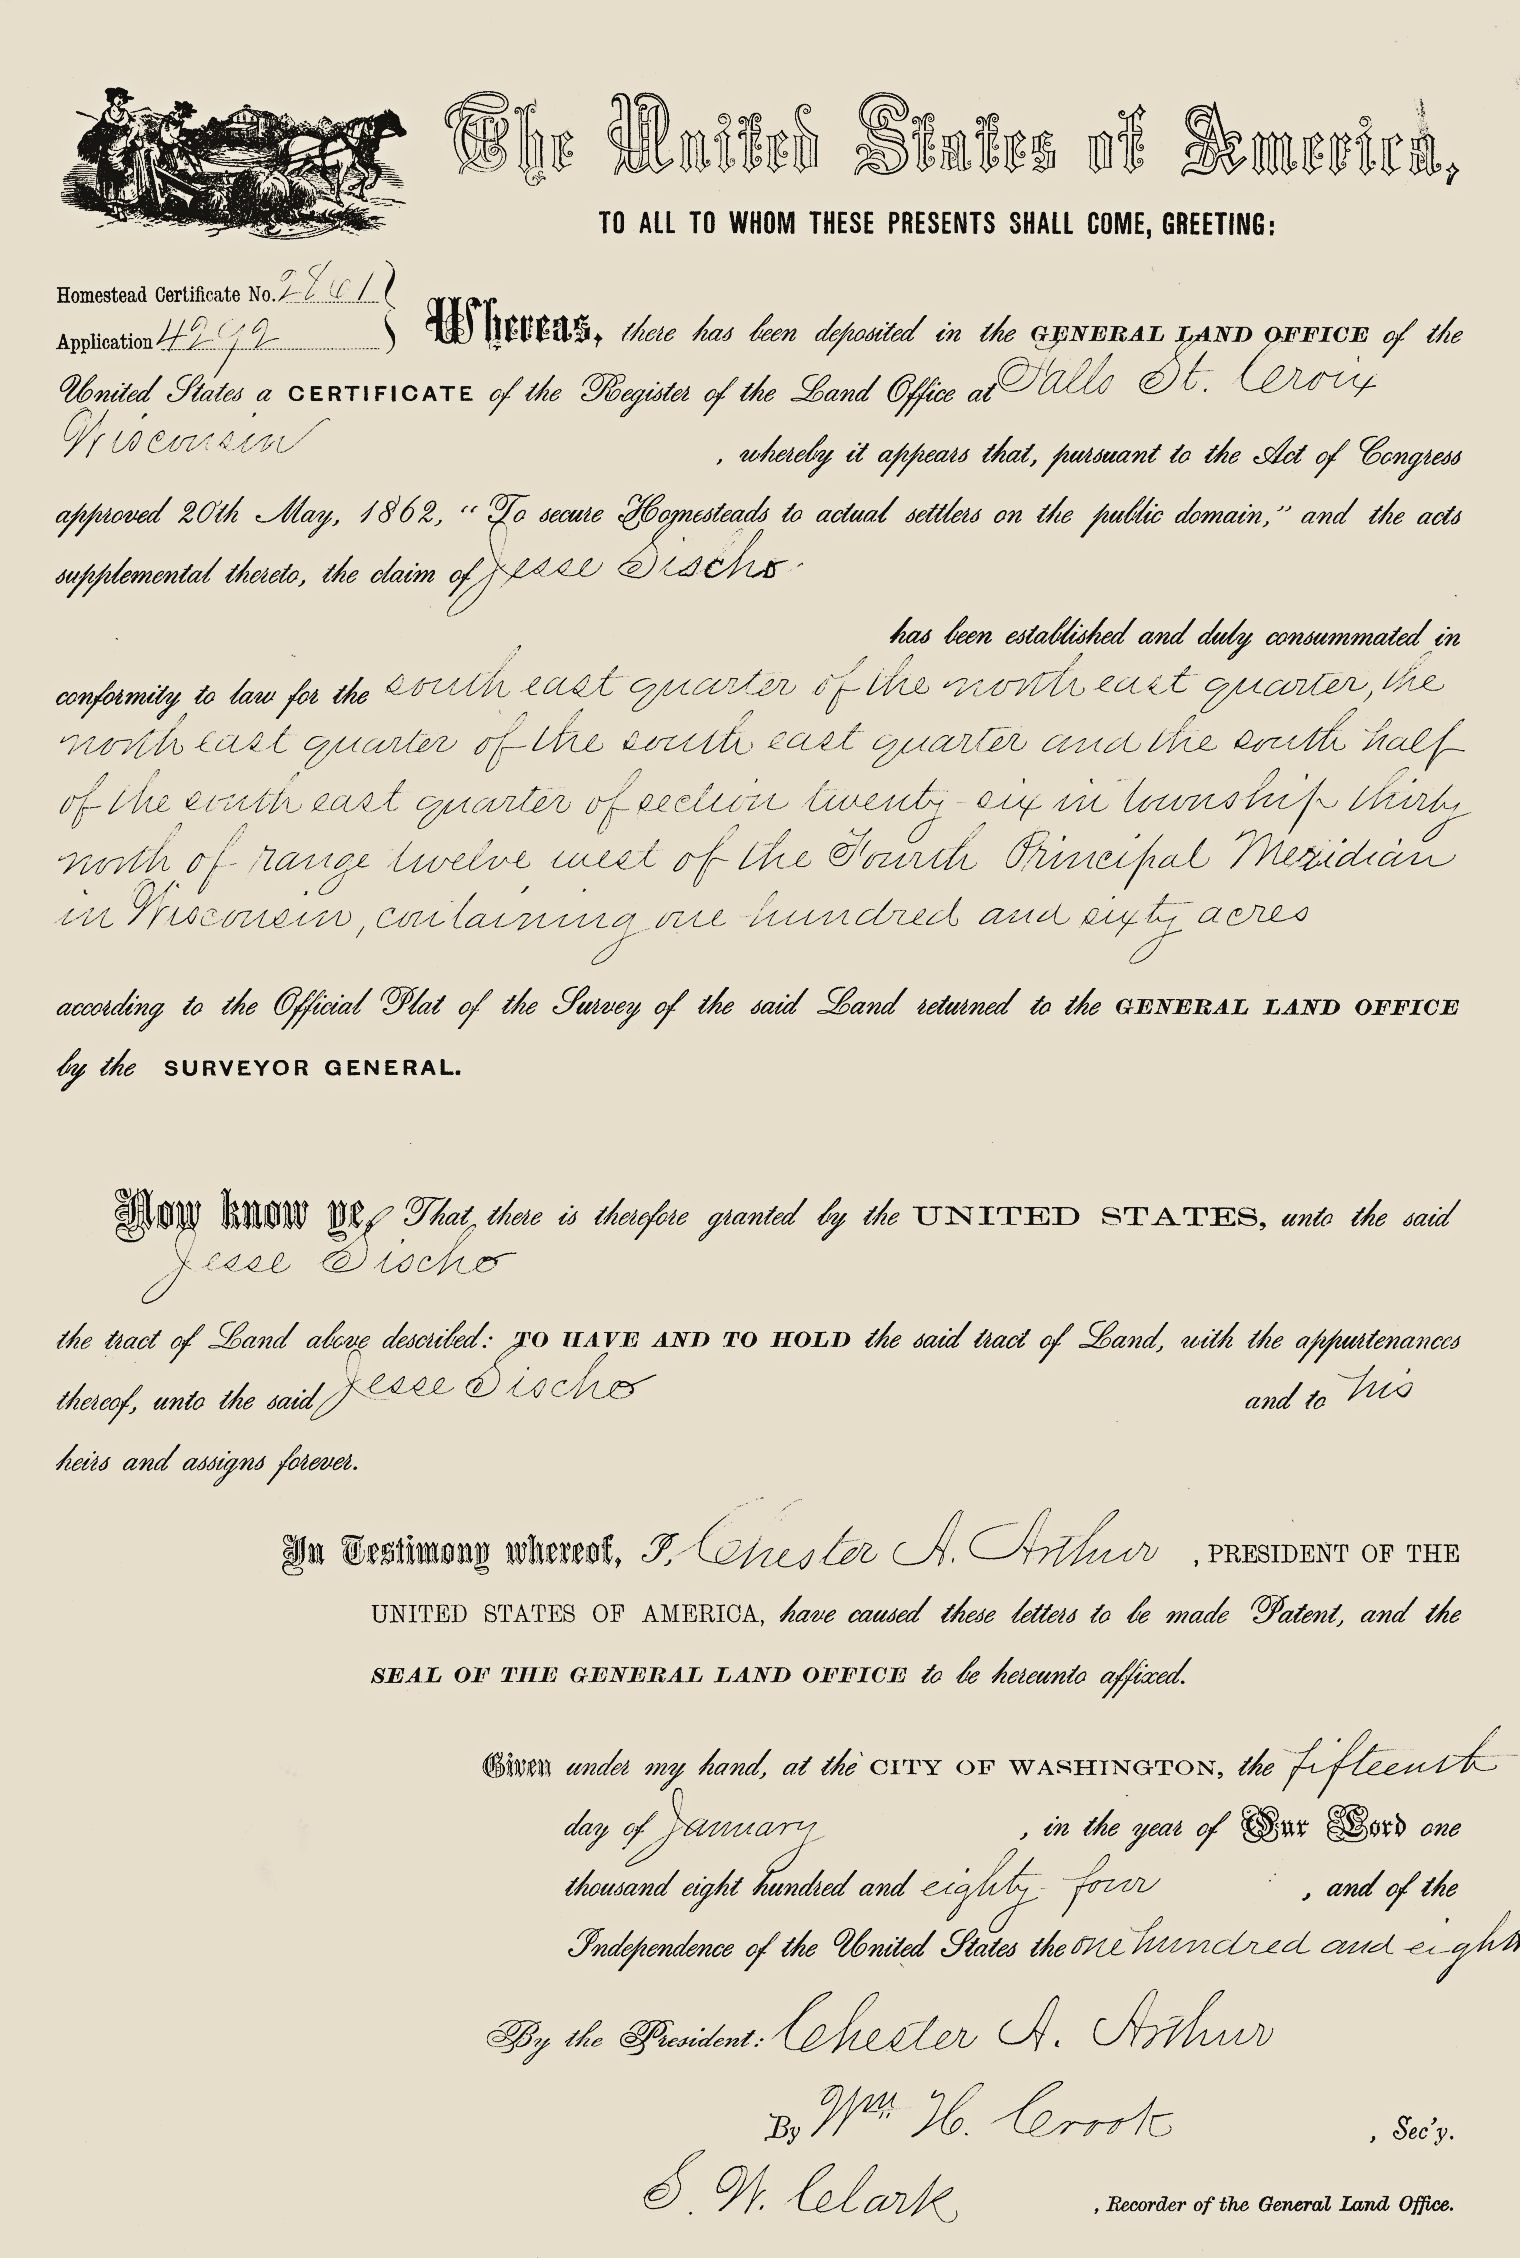 The United States of America,
TO ALL TO WHOM THESE PRESENTS SHALL COME, GREETING:
Homestead Certificate No. 2861
Application 4292
Whereas, there has been deposited in the GENERAL LAND OFFICE of the
United States a CERTIFICATE of the Register of the Land Office at Falls St. Croix
Wisconsin , whereby it appears that, pursuant to the Act of Congress
approved 20th May, 1862, “To secure Homesteads to actual settlers on the public domain,” and the acts
supplemental thereto, the claim of Jesse Sischo
has been established and duly consummated in
conformity to law for the south east quarter of the north east quarter, the
north east quarter of the south east quarter and the south half
of the south east quarter of section twenty-six in township thirty
north of range twelve west of the Fourth Principal Meridian
in Wisconsin, containing one hundred and sixty acres
according to the Official Plat of the Survey of the said Land returned to the GENERAL LAND OFFICE
by the SURVEYOR GENERAL.
Now know ye, That there is therefore granted by the UNITED STATES, unto the said
Jesse Sischo
the tract of Land above described: TO HAVE AND TO HOLD the said tract of Land, with the appurtenances
thereof, unto the said Jesse Sischo and to his
heirs and assigns forever.
In Testimony whereof, I, Chester A. Arthur , PRESIDENT OF THE
UNITED STATES OF AMERICA, have caused these letters to be made Patent, and the
SEAL OF THE GENERAL LAND OFFICE to be hereunto affixed.
Given under my hand, at the CITY OF WASHINGTON, the fifteenth
day of January , in the year of Our Lord one
thousand eight hundred and eighty-four , and of the
Independence of the United States the one hundred and eighth
By the President: Chester A. Arthur
By Wm. H. Crook , Sec'y.
S. W. Clark , Recorder of the General Land Office.